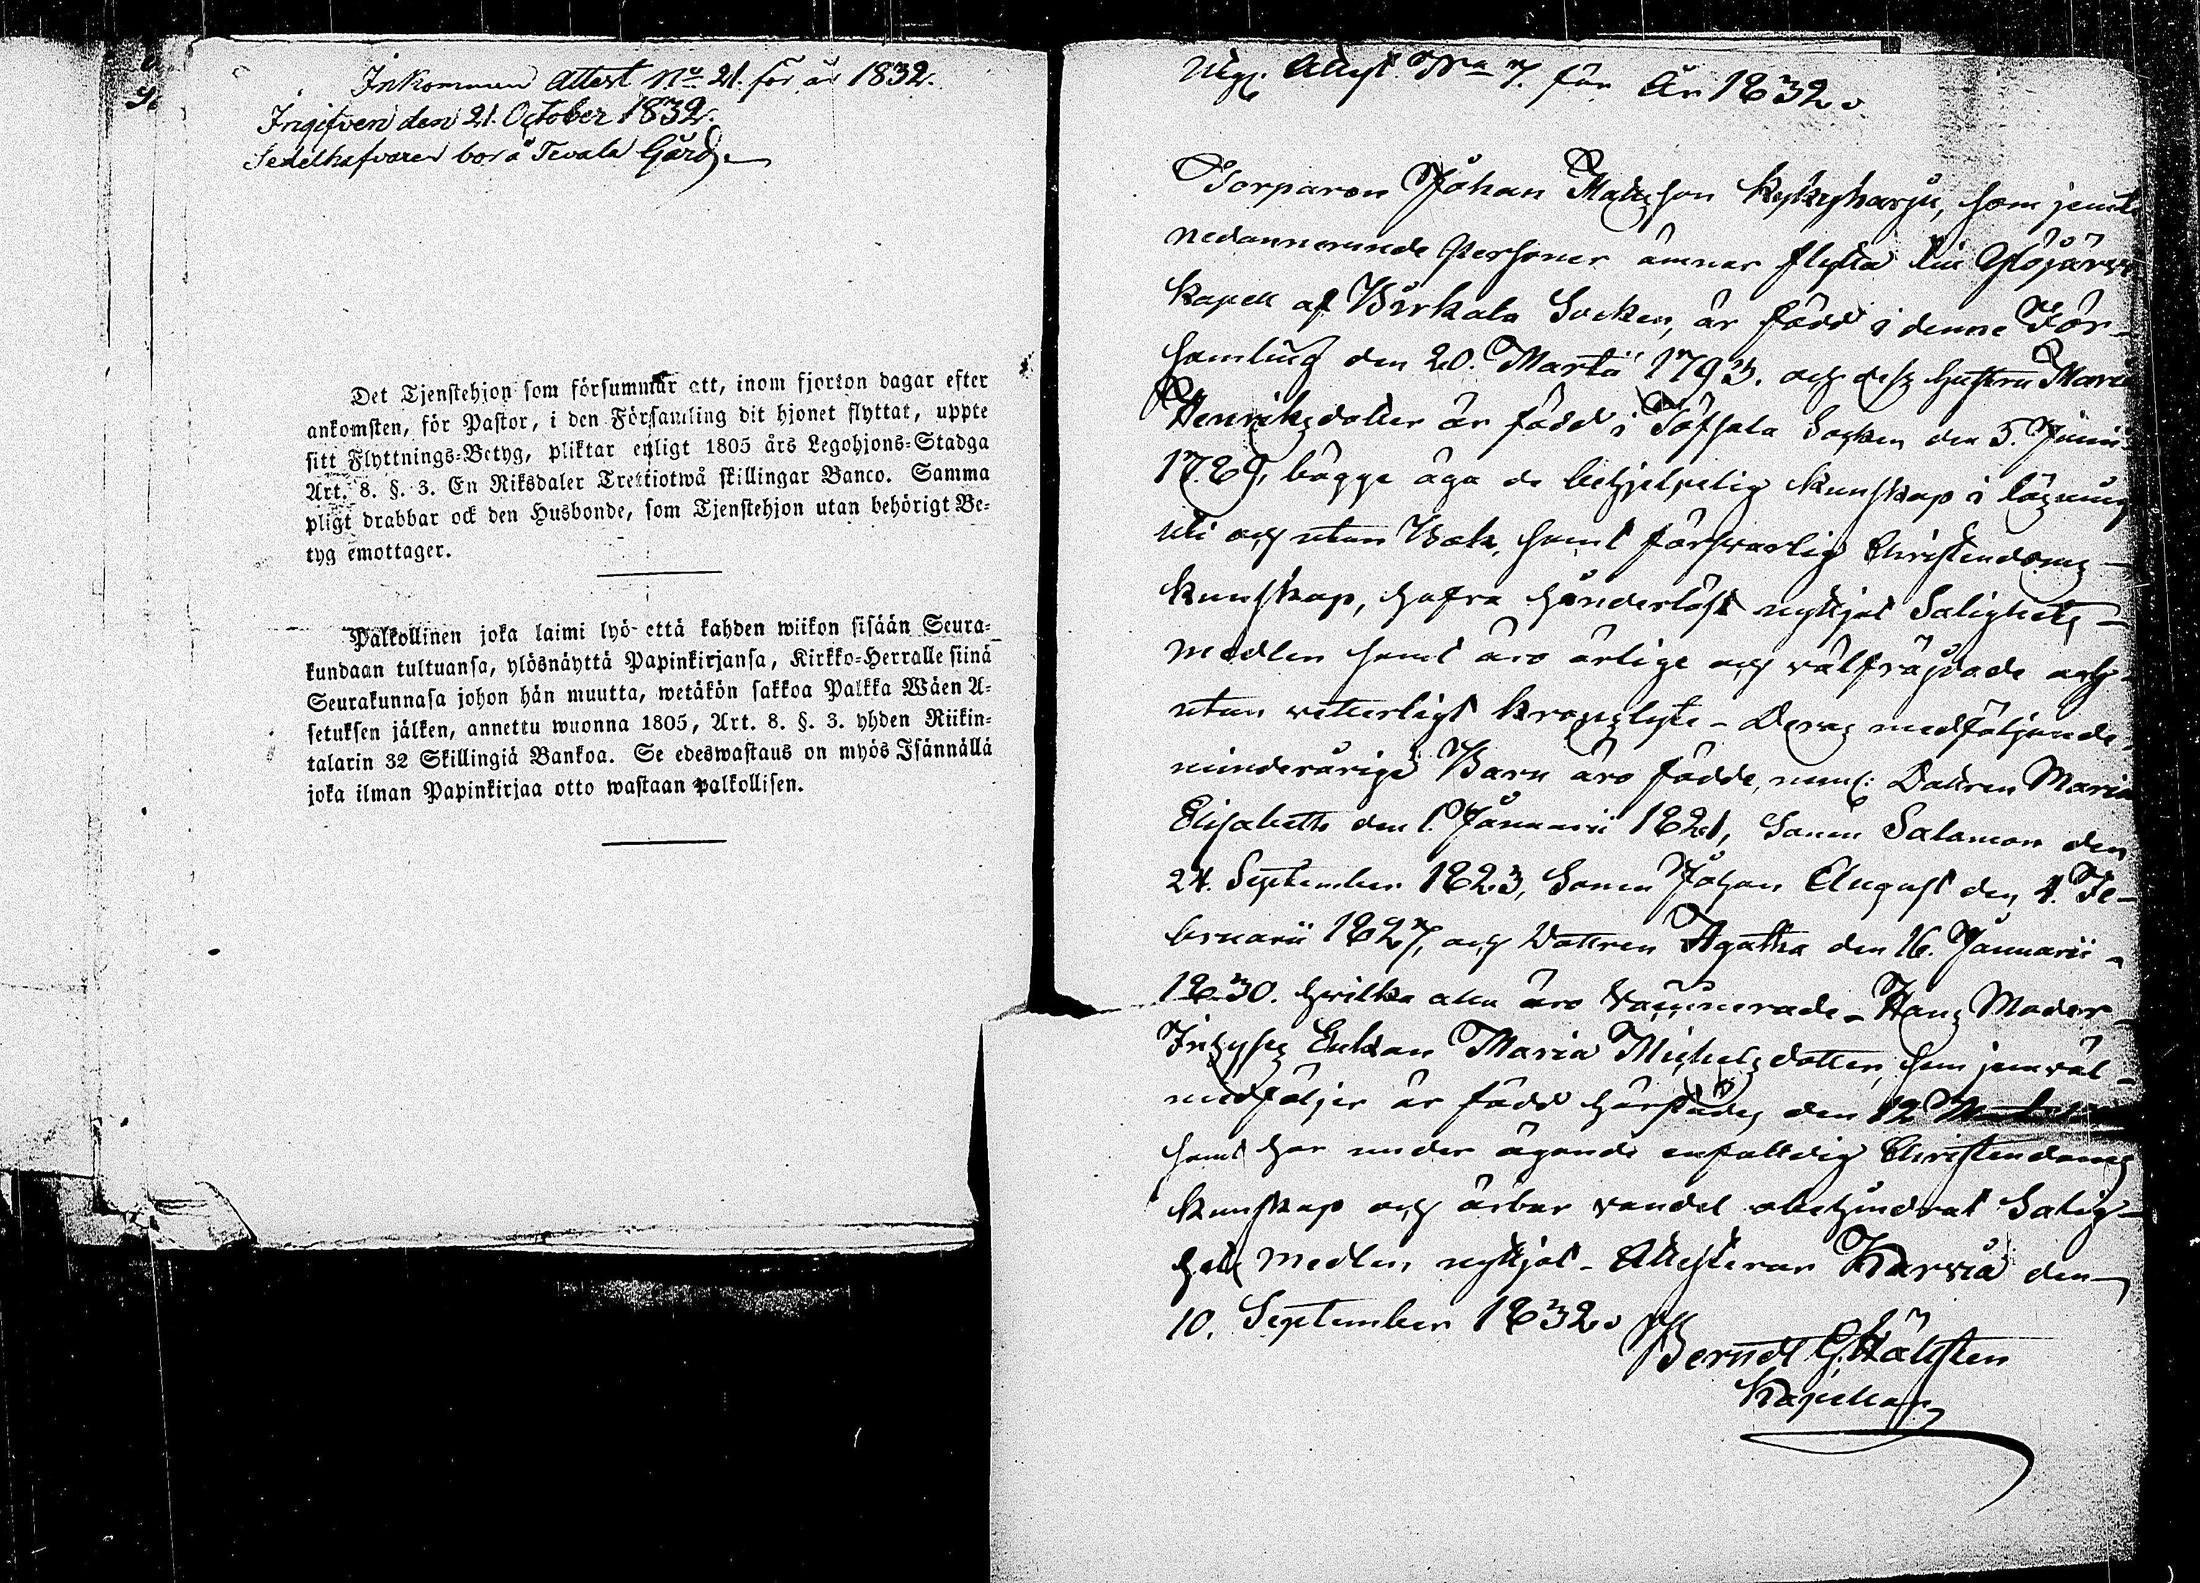 Inkommen Attest No 21. för år 1832.
Ingifven den 21. October 1832.
Sedelhafvaren bor å Tevala Gård.
Det Tjenstehjon som försummar att, inom fjorton dagar efter
ankomsten, för Pastor, i den Församling dit hjonet flyttat, uppte
sitt Flyttnings-Betyg, pliktar enligt 1805 års Legohjons-Stadga
Art. 8. §. 3. En Riksdaler Trettiotwå skillingar Banco. Samma
pligt drabbar ock den Husbonde, som Tjenstehjon utan behörigt Be-
tyg emottager.
Palkollinen joka laimi lyö että kahden wiikon sisään Seura-
kundaan tultuansa, ylösnäyttä Papinkirjansa, Kirkko-Herralle siinä
Seurakunnasa johon hän muutta, wetäkön sakkoa Palkka Wäen A-
setuksen jälken, annettu wuonna 1805, Art. 8. §. 3. yhden Riikin-
talarin 32 Skillingiä Bankoa. Se edeswastaus on myös Isännällä
joka ilman Papinkirjaa otto wastaan palkollisen.
Utg. Attest No 7. för År 1832.
Torparen Johan Matsson Kykyharju, som jemte
nedannemnde personer ämnar flytta till Ylöjärvi
Kapell af Birkala Socken, är född i denne För-
samling den 20. Martii 1793. och dess hustru Maria
Henriksdotter är född i Töfsala Socken den 5. Junii
1789, bägge äga de behjelpelig kunskap i läsning
uti och utan Bok, samt försvarlig Christendoms-
kunskap, hafva hinderlöst nyttjat Salighets-
medlen samt äro ärlige och välfräjdade och
utan vetterligt kropslyte - Deras medföljande
minderårige Barn äro födde, neml: Dottren Maria
Elisabeth den 1. Januarii 1821, Sonen Salomon den
24. September 1823, Sonen Johan August den 4. Fe-
bruarii 1827, och Dottren Agatha den 16. Januarii
1830. hvilka alla äro Vaccinerade - Hans Moder
Inhyses Enkan Maria Michelsdotter, som jemväl
medföljer är född härstädes den 12
samt har under ägande enfaldig Christendoms
kunskap och ärbar vandel obehindrat Salig-
hets medlen nyttjat - Attesterar Karvia den
10. September 1832.
Berndt G. Hällsten
Kapellan